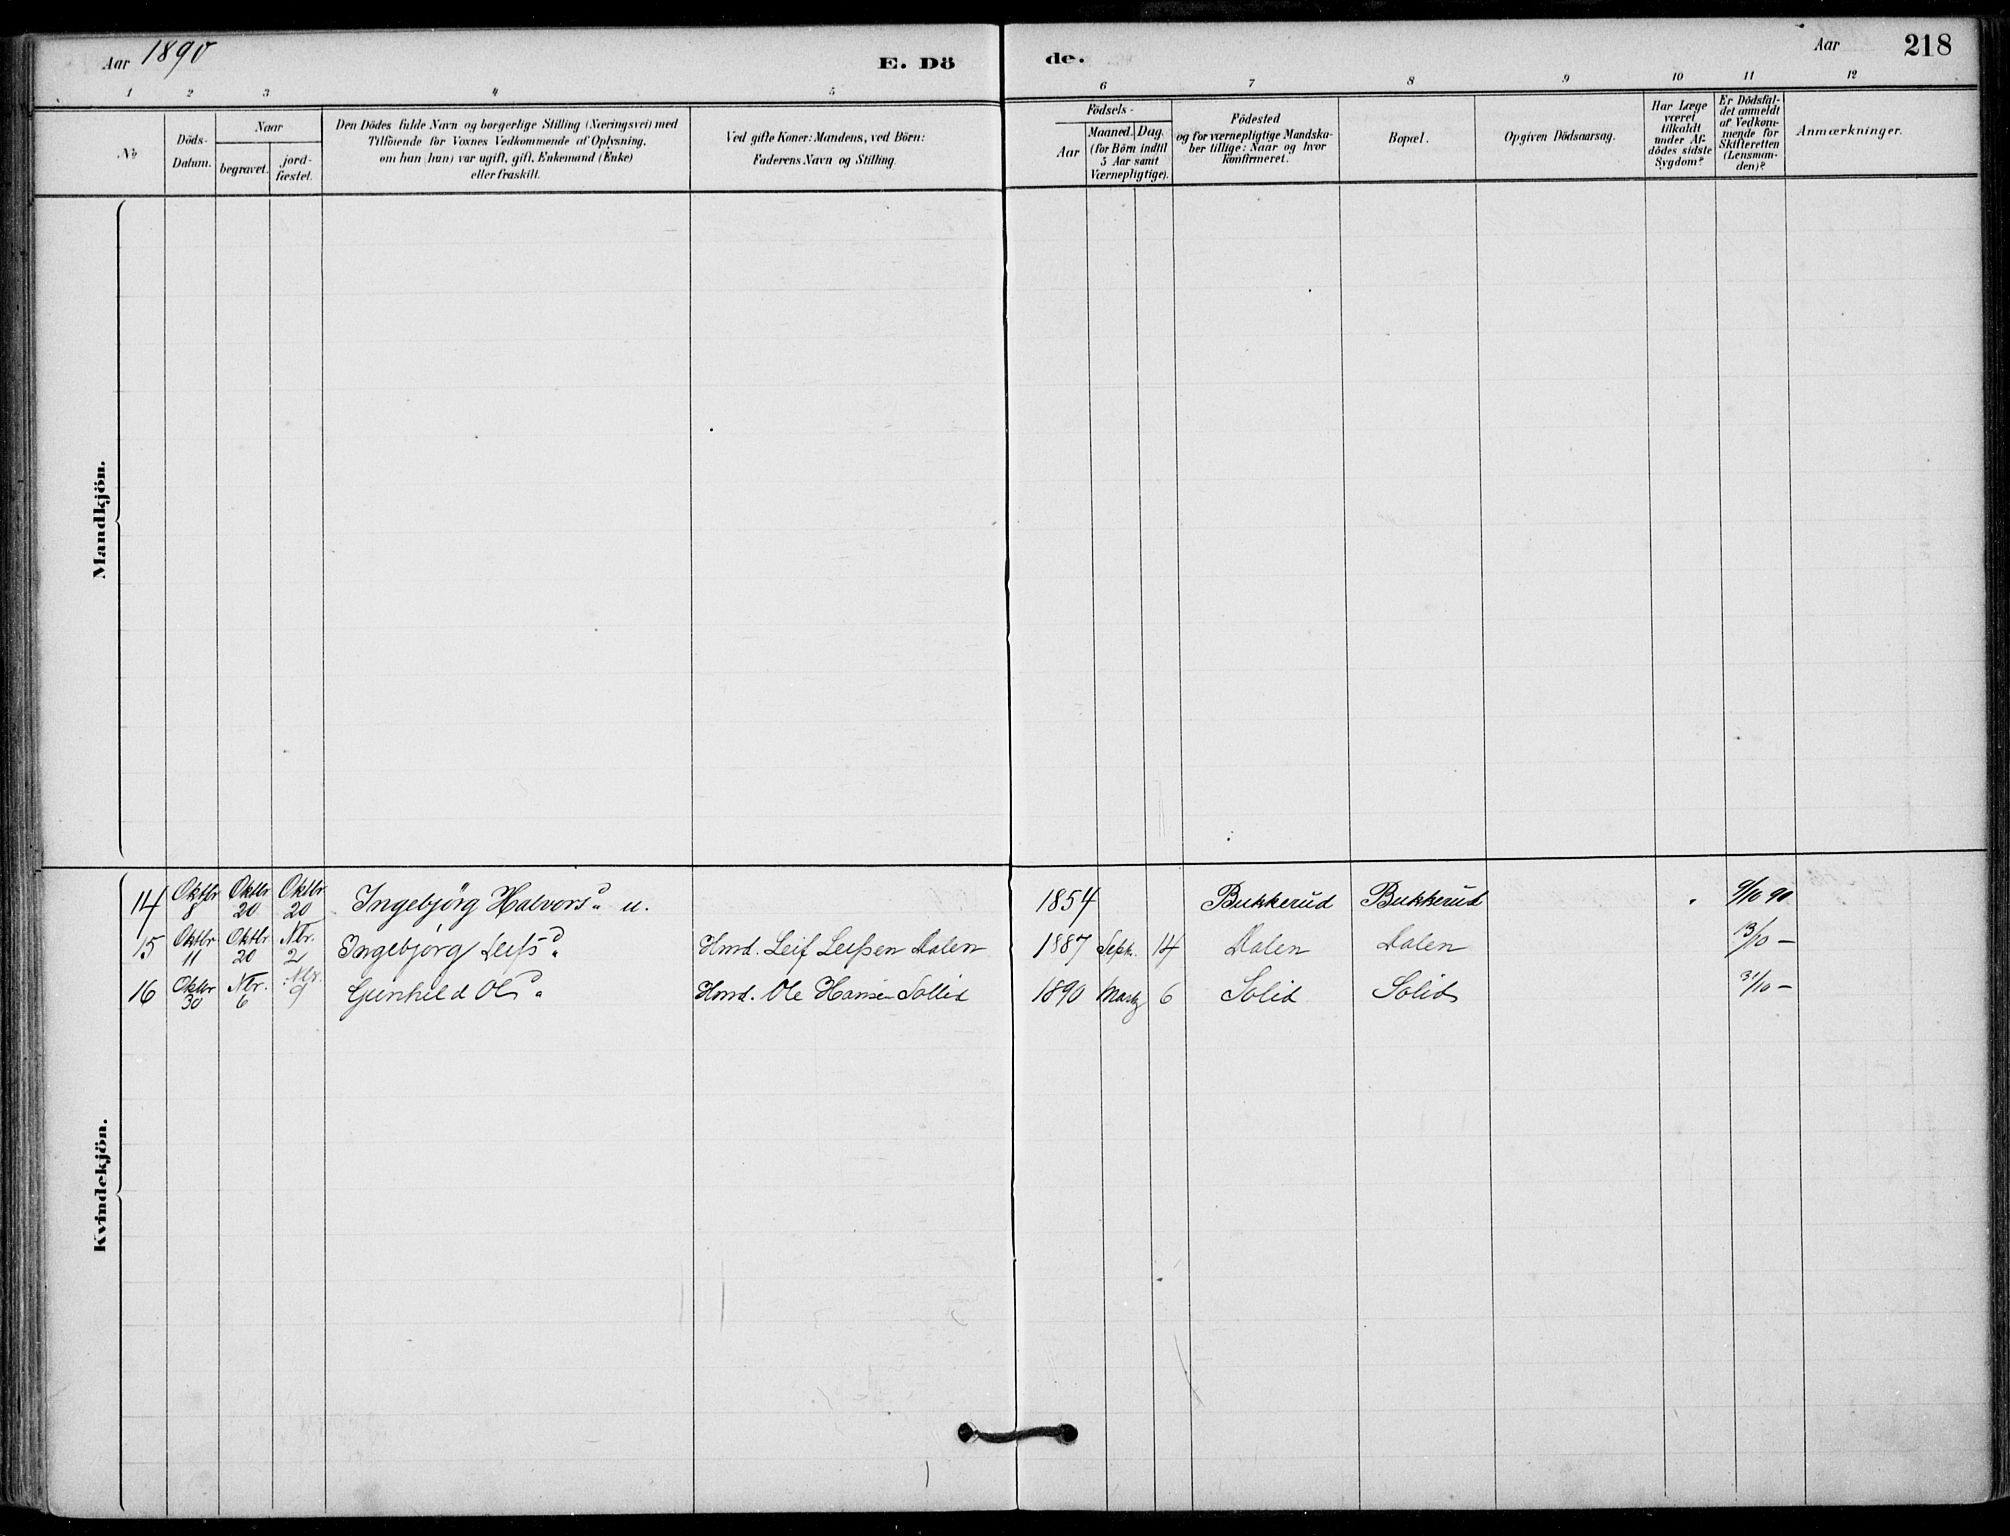 Aar 1890 E. Dö de. Aar 218
1 2 3 4 5 6 7 8 9 10 11 12
No
Döds-
Datum.
Naar
begravet.
jord-
fæstet.
Den Dödes fulde Navn og borgerlige Stilling (Næringsvei) med
Tilföiende for Voxnes Vedkommende af Oplysning,
om han (hun) var ugift, gift, Enkemand (Enke)
eller fraskilt.
Ved gifte Koner: Mandens, ved Börn:
Faderens Navn og Stilling.
Födsels-
Aar
Maaned. Dag.
(for Börn indtil
5 Aar samt
Værnepligtige).
Födested
og for værnepligtige Mandska-
ber tillige: Naar og hvor
konfirmeret.
Bopæl.
Opgiven Dödsaarsag.
Har Læge
været
tilkaldt
under Af-
dödes sidste
Sygdom?
Er Dödsfal-
det anmeldt
af Vedkom-
mende for
Skifteretten
(Lensman-
den)?
Anmærkninger.
Mandkjön.
Kvindekjön.
14 Oktbr 8 Oktbr 20 Oktbr. 20 Ingebjörg Halvorsd. u. 1854 Bukkerud Bukkerud 9/10 90
15 Oktbr 11 Oktbr 20 Nbr. 2 Ingebjörg Leifsd. Hmd. Leif Leifsen Dalen 1887 Septr. 14 Dalen Dalen 13/10 –
16 Oktbr 30 Nbr. 6 Nbr. 9 Gunhild Olsd. Hmd. Ole Hansen Sollid 1890 Marts 6 Solid Solid 31/10 –